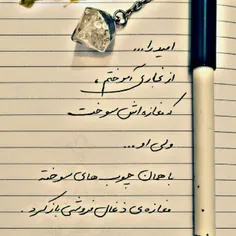 امید را...
از نجاری آموختم،
که مغازه‌اش سوخت
ولی او...
با همان چوب های سوخته
مغازه‌ی ذغال فروشی باز کرد.